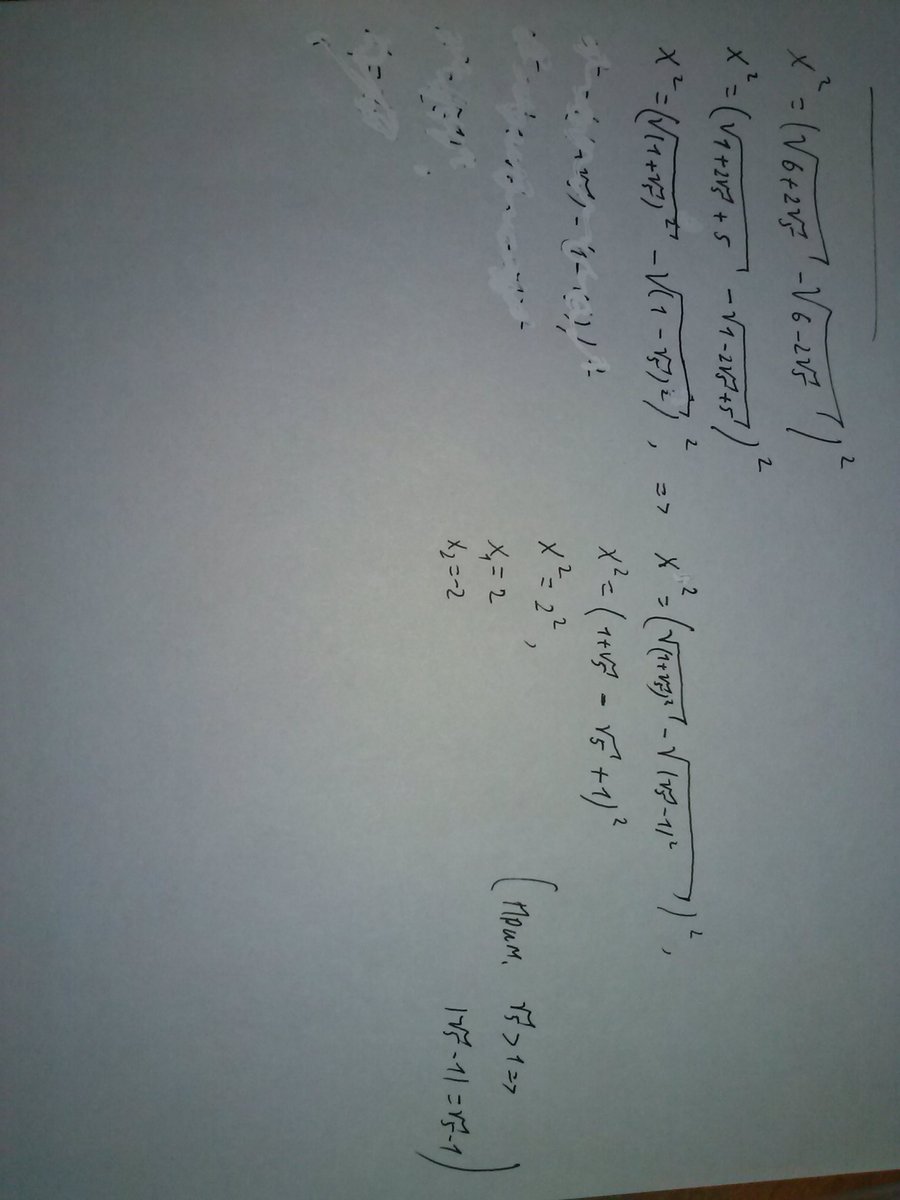 x² = (√(6+2√5) - √(6-2√5))²
x² = (√(1+2√5+5) - √(1-2√5+5))²
x² = (√(1+√5)² - √(1-√5)²)², => x² = (√(1+√5)² - √(√5-1)²)²,
x² = (1+√5 - √5 + 1)²
x² = 2²,
x₁ = 2
x₂ = -2
(Прим. √5 > 1 =>
|√5 - 1| = √5 - 1)